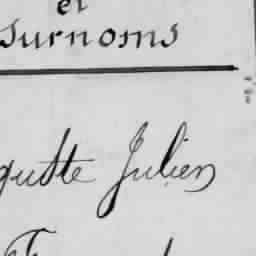 et
surnoms
guste Julien